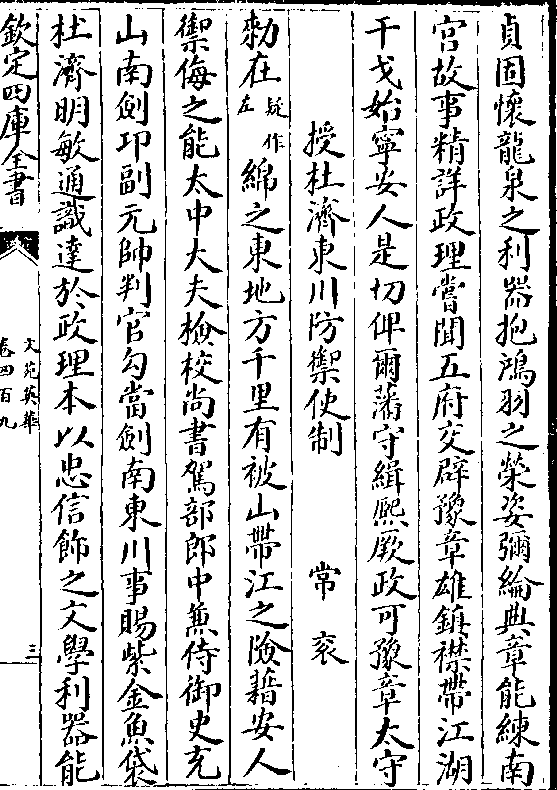 貞固懷龍泉之利器抱鴻羽之榮姿彌綸典章能練南
宫故事精詳政理嘗聞五府交辟豫章雄鎮襟帶江湖
干戈始寧安人是切俾爾藩守緝熈厥政可豫章太守
授杜濟東川防禦使制 常衮
勅在疑作左綿之東地方千里有被山帶江之險藉安人
禦侮之能太中大夫檢校尚書駕部郎中兼侍御史充
山南劍卭副元帥判官勾當劍南東川事賜紫金魚袋
杜濟明敏通識達於政理本以忠信飾之文學利器能
欽定四庫全書
文苑英華
卷四百九
三